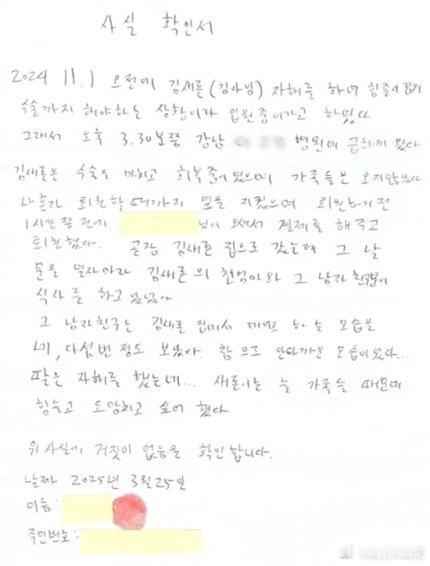 사실 확인서
2024 11.1 오전에 김새론(김아임) 자해를 하여 힘줄이 끊겨
수술까지 해야하는 상황이라 입원중이라고 하였다
그래서 오후 3.30보쯤 강남 병원에 급하게 갔다
김새론은 수술을 마치고 회복중이었으며 가족들은 오지않았다
나혼자 퇴원할때까지 옆을 지켰으며 퇴원하기전
1시간쯤 전에 님이 오셔서 결제를 해주고
퇴원했다. 곧장 김새론 집으로 갔는데 그 날
문을 열자마자 김새론의 친엄마와 그 남자친구분이
식사를 하고 있었다
그 남자친구는 김새론 집에서 데모도 하는 모습을
네, 다섯번 정도 보았다. 참으로 안타까운 모습이었다...
딸은 자해를 했는데... 새론이는 늘 가족들 때문에
힘들고 도망치고 싶어 했다
위 사실에 거짓이 없음을 확인 합니다.
날짜 2025년 3월 25일
이름:
주민번호: